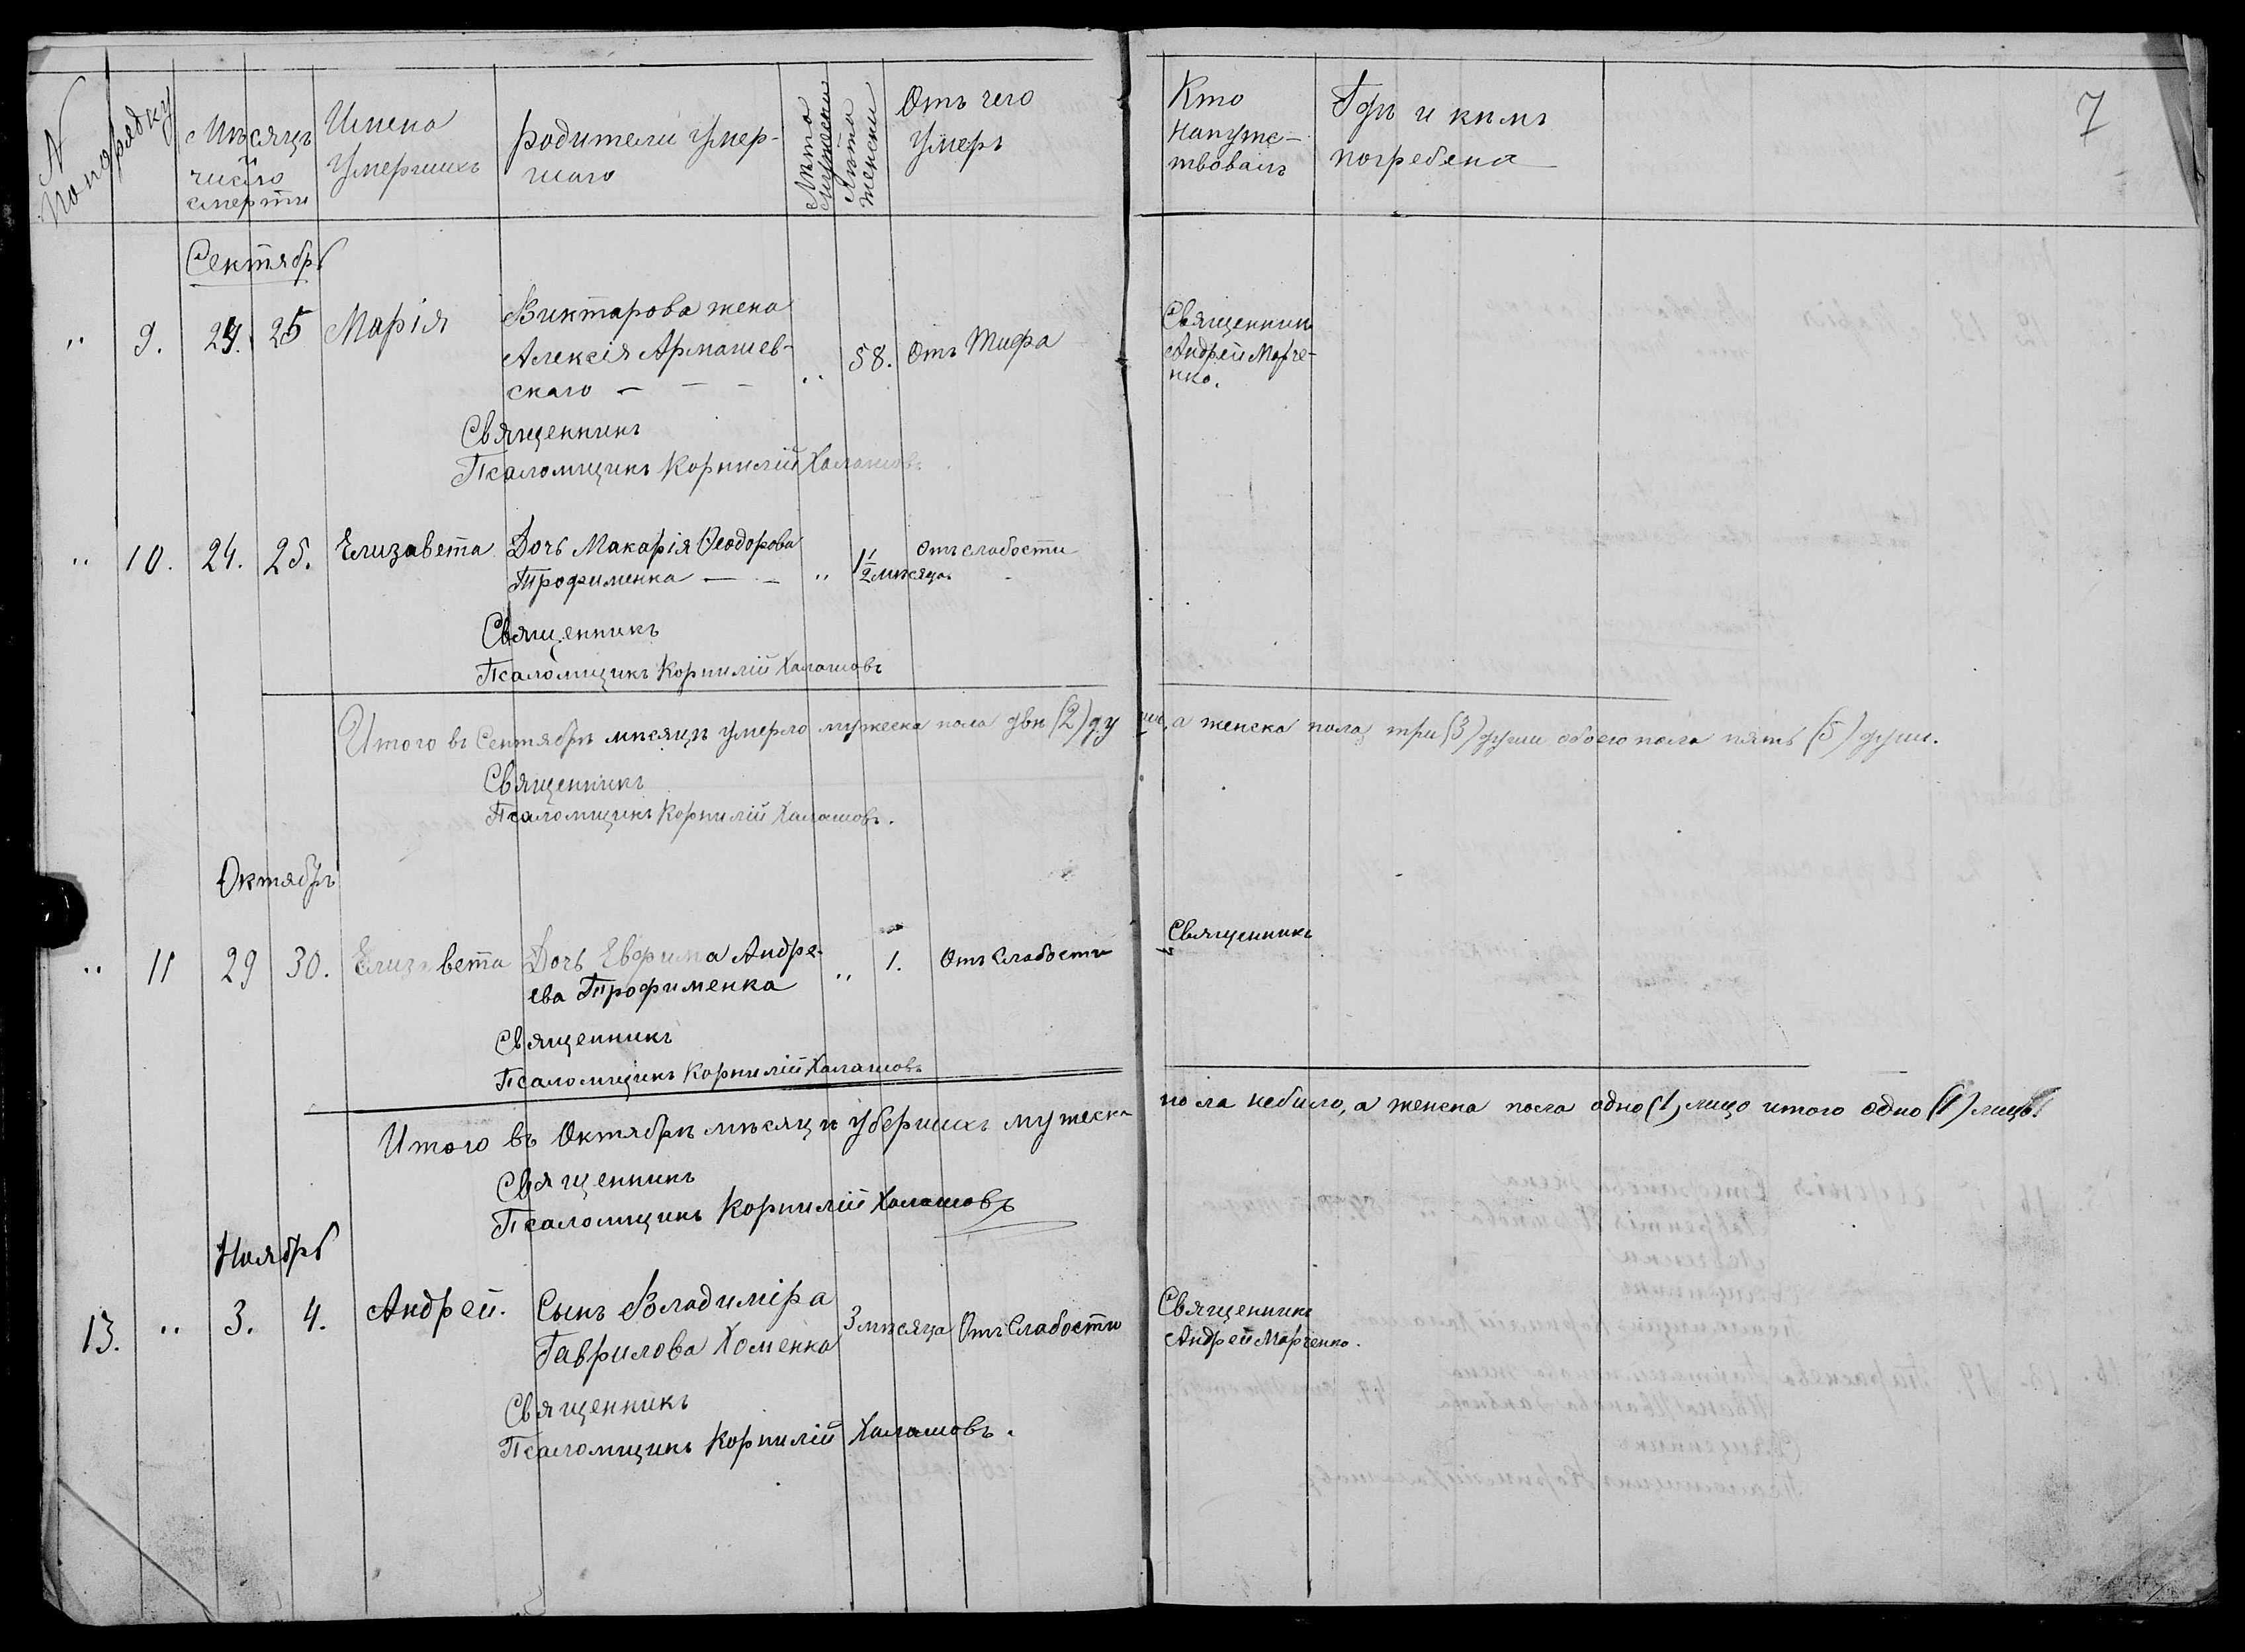 N
По порядку
Мѣсяцъ
число
смерти
Имена
Умершихъ
родители умер-
шаго
Лѣта
мужески
Лѣта
женски
Отъ чего
умеръ
Кто
напутс-
твовалъ
Гдѣ и кѣмъ
погребена
7
Сентябрь
" 9. 24. 25 Марія
Викторова жена
Алексія Армашев-
скаго — — —
" 58. Отъ Тифа
Священникъ
Андрей Марче-
нко.
Священникъ
Псаломщикъ Корнилій Халашовъ.
" 10. 24. 25. Елизавета
Дочь Макарія Ѳеодорова
Трофименка — —
" 1 1/2 мѣсяцъ
отъ слабости
Священникъ
Псаломщикъ Корнилій Халашовъ
Итого въ Сентябрѣ мѣсяцѣ умерло мужеска пола двѣ (2) ду ши, а женска пола три (3) души обоего пола пять (5) душ.
Священникъ
Псаломщикъ Корнилій Халашовъ.
Октябрь
" 11 29 30. Елизавета
Дочь Евфима Андре-
ева Трофименка
" 1. Отъ Слабости
Священникъ
Священникъ
Псаломщикъ Корнилій Халашовъ
Итого въ Октябрѣ мѣсяцѣ убершихъ мужеска пола небило, а женска пола одно (1) лицо итого одно (1) лицо.
Священникъ
Псаломщикъ Корнилій Халашовъ
Ноябрь
13. " 3. 4. Андрей.
Сынъ Владиміра
Гаврилова Хоменка
3 мѣсяца Отъ Слабости
Священникъ
Андрей Марченко.
Священникъ
Псаломщикъ Корнилій Халашовъ.